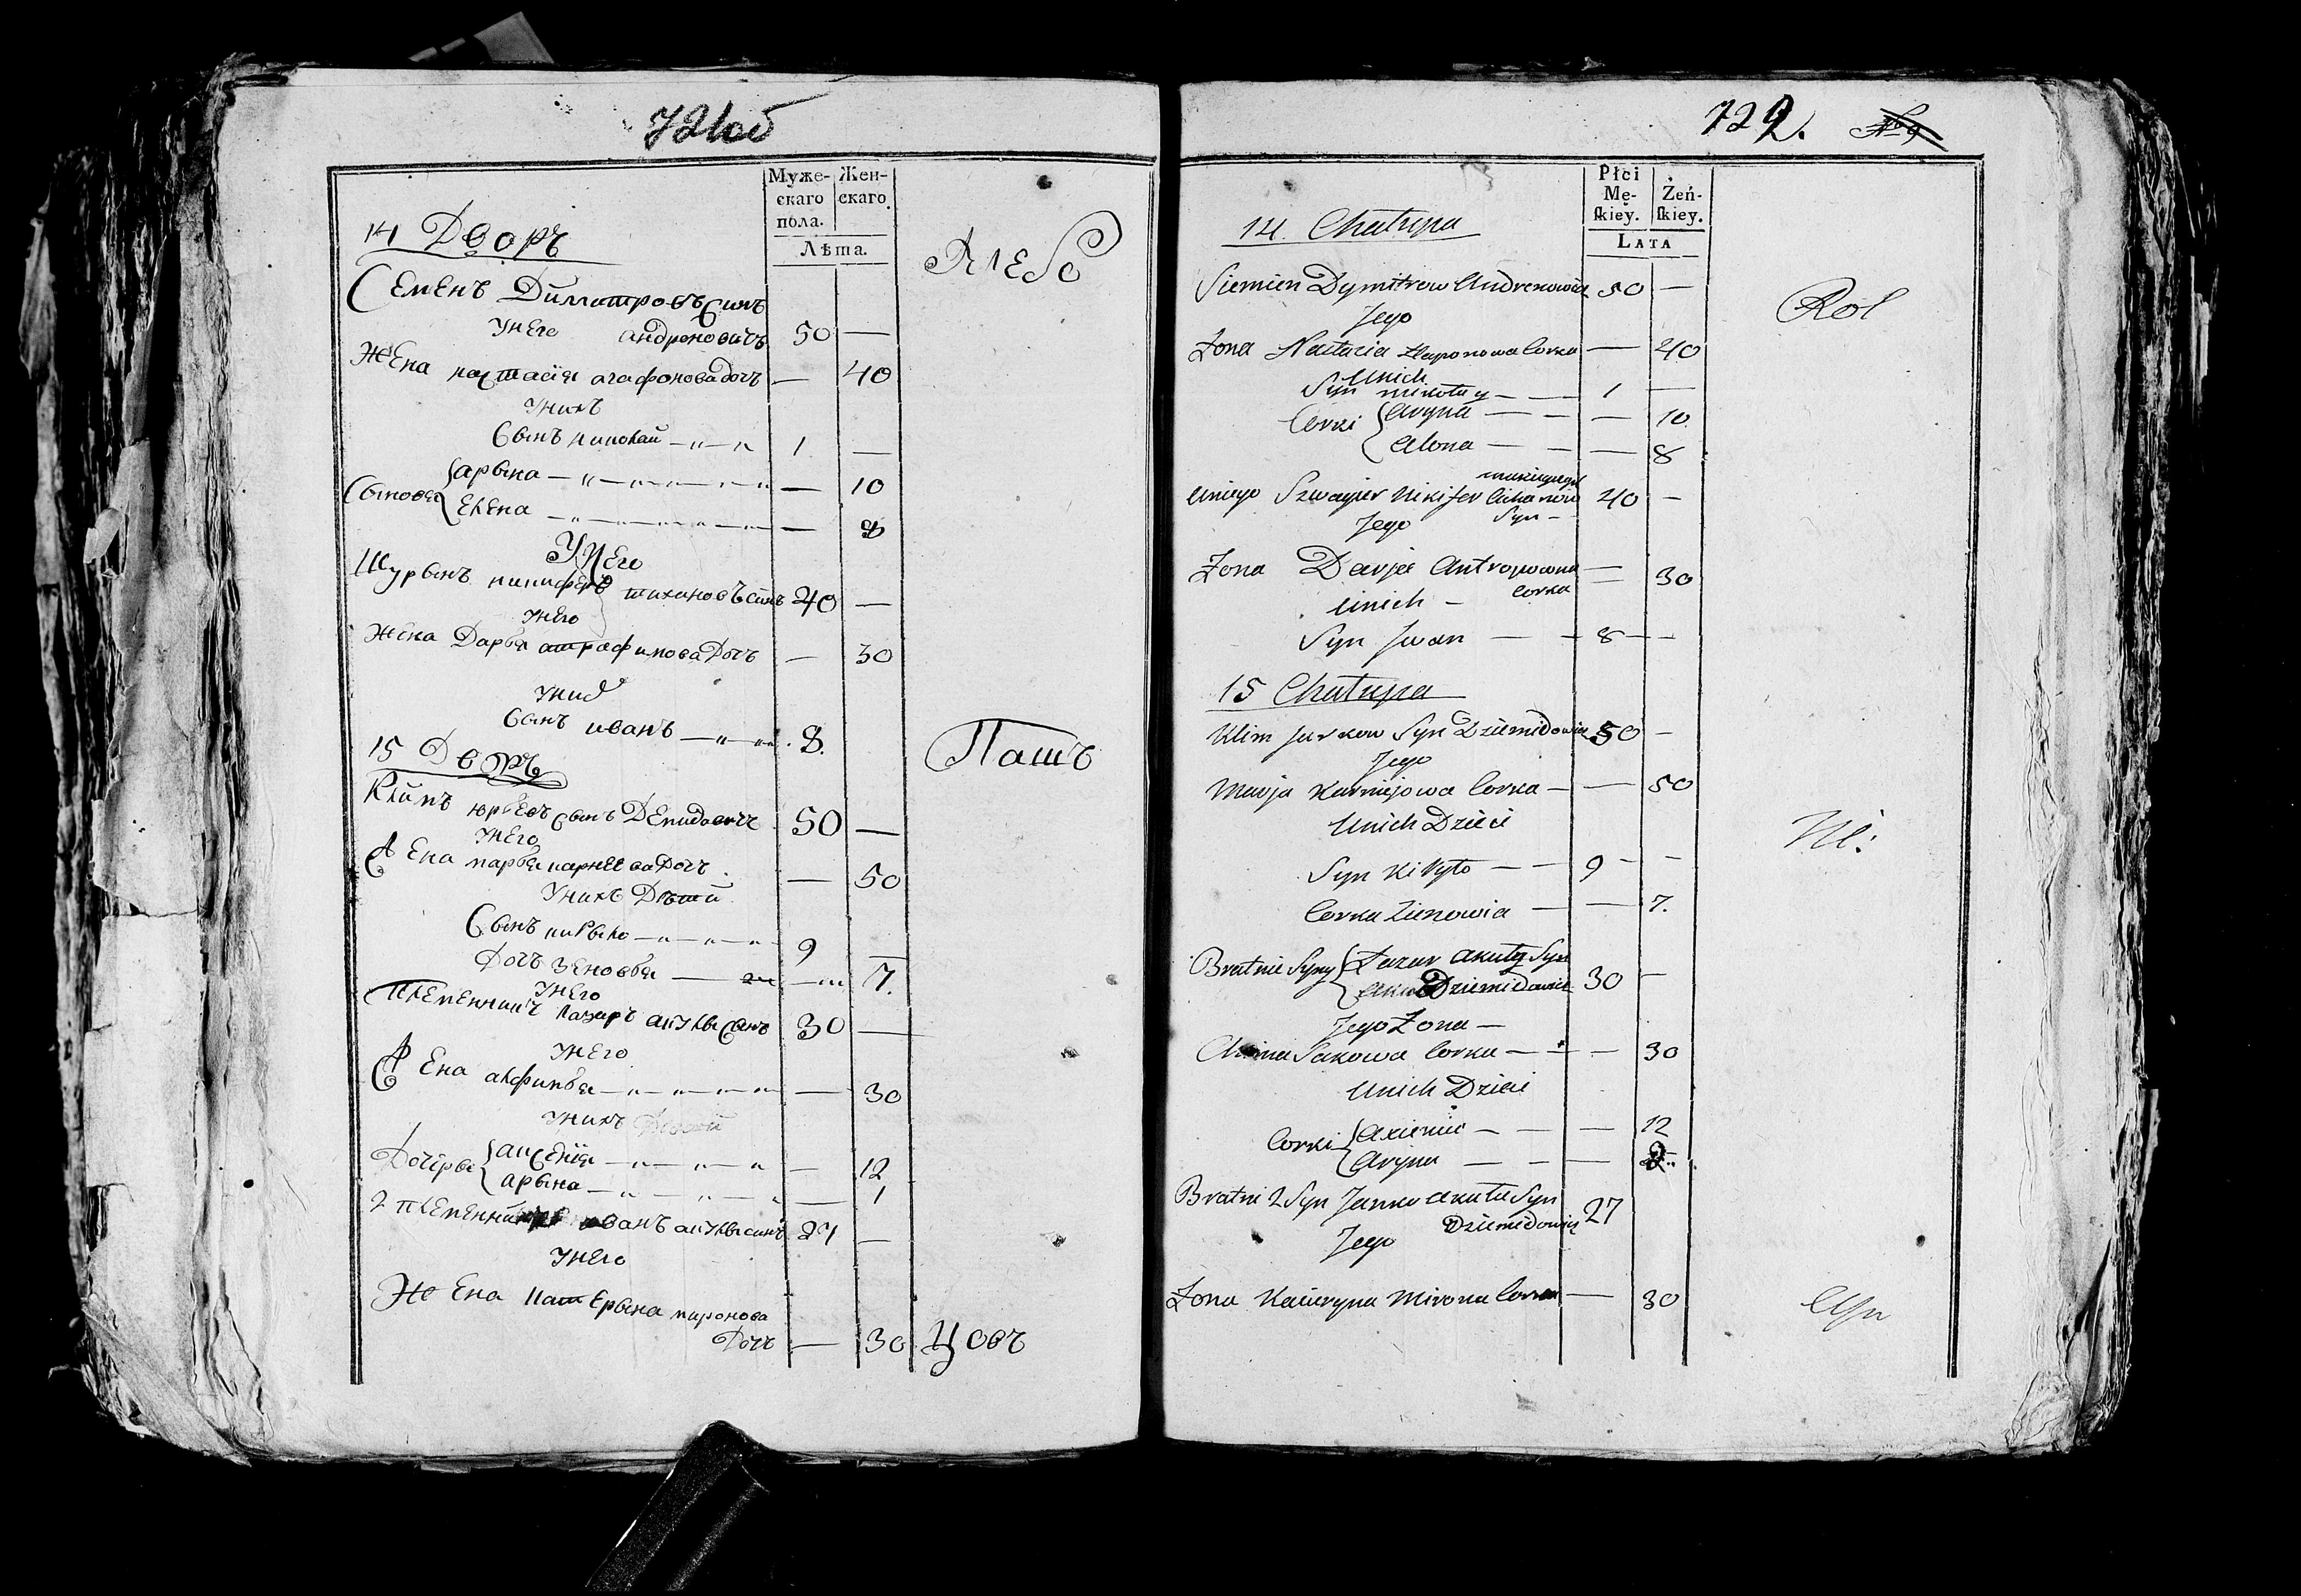 721об
Муже-
скаго
пола.
Жен-
скаго.
Лѣта.
14 Дворъ
Семенъ Димитровъ Синъ
Унего андроновичъ 50 —
Жена настасія агафонова дочъ — 40
Унихъ
Сынъ николай — 1 —
арына — 10
Елена — 8
Унего
Шурынъ никифоръ тихановъ синъ 40 —
Унего
Жена Дарья дочъ — 30
Сынъ иванъ — 8.
15 Дворъ
Климъ юрьевъ сынъ Демидовичъ 50 —
Унего
Жена марья карнеева дочъ — 50
Унихъ Дѣтей
Сынъ кирыло — 9 —
Дочъ Зеновья — 7.
Унего
племенникъ Лазаръ акулы Сынъ 30 —
Унего
Жена — 30
Унихъ
аксенія — 12
арына — 1
2 иванъ акулы синъ 27 —
Унего
Жена катерына миронова
Дочъ — 30
Пашъ
Цовъ
722.
Płci
Mę-
ſkiey.
Żeń-
ſkiey.
Lata
14. Chałupa
Siemien Dymitrow Andronowicz 50 —
Jego
Zona Nastazia corka — 40
Unich
Syn mikołay — 1 —
Corki Aryna — 10
Alona — 8
Uniego Szwagier Nikifor Cichanow 40 —
Jego Syn —
Zona Darja Antropowna — 30
Unich — corka
Syn Jwan — 8 —
15 Chałupa
Klim Jurkow Syn Dziemidowicz 50 —
Jego
Marja Karniejowa Corka — 50
Unich Dzieci
Syn Kiryło — 9 —
Corka Zienowia — 7.
Bratnie Syny Łazar akuły Syn
Dziemidowicz 30 —
Jego Zona —
Sakowa Corka — 30
Unich Dzieci
Corki Axienia — 12
Aryna —
Bratni 2 Syn Janko akuła Syn
Dziemidowicz 27
Jego
Zona Kacieryna Mirona Corka — 30
Rol
Ni: